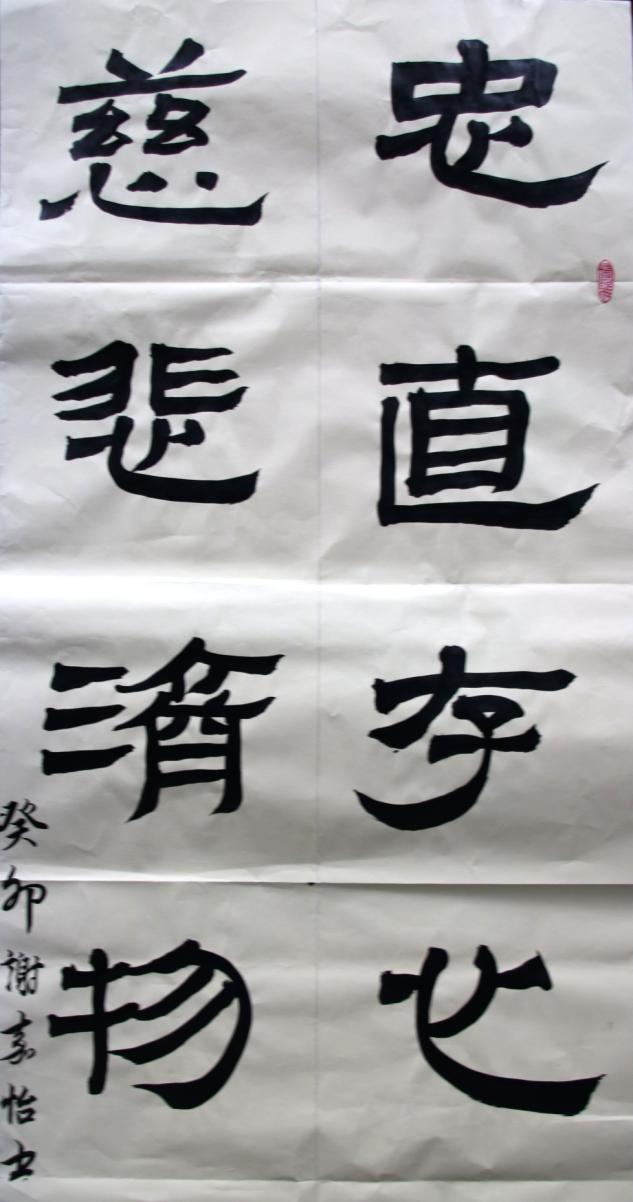 忠直存心
慈悲濟物
癸卯謝嘉怡書